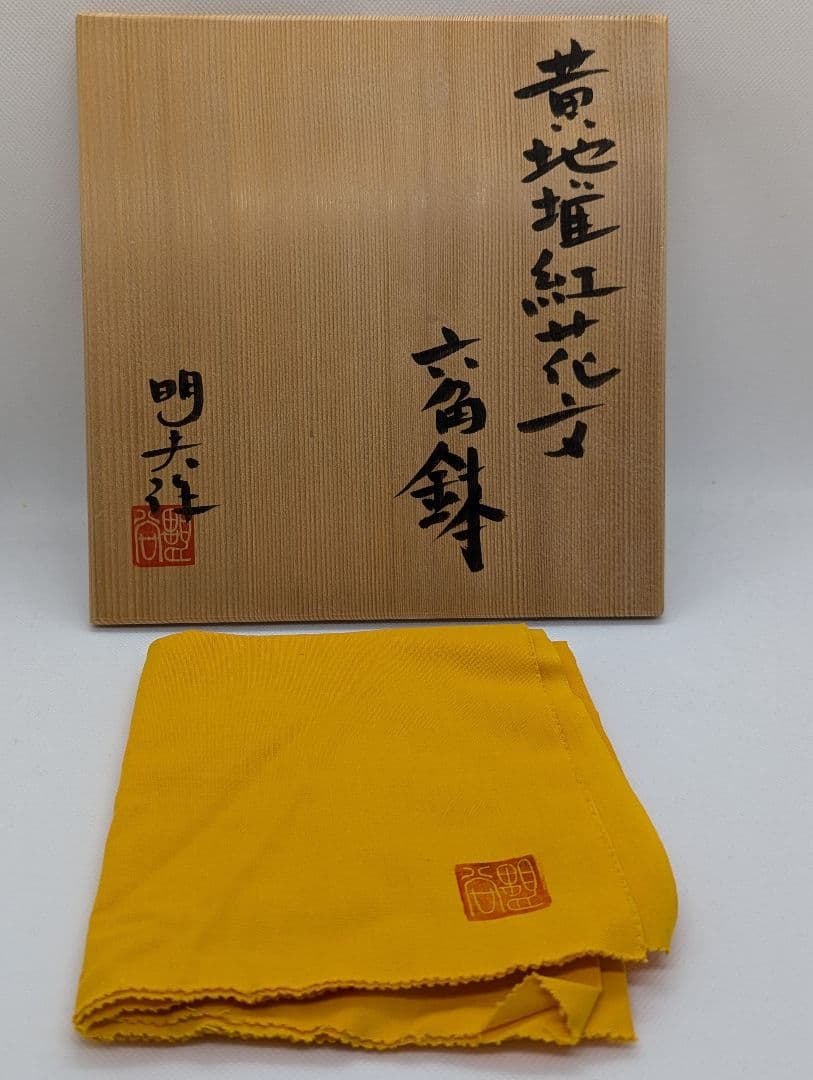 黄地堆紅花文
六角鉢
明夫作